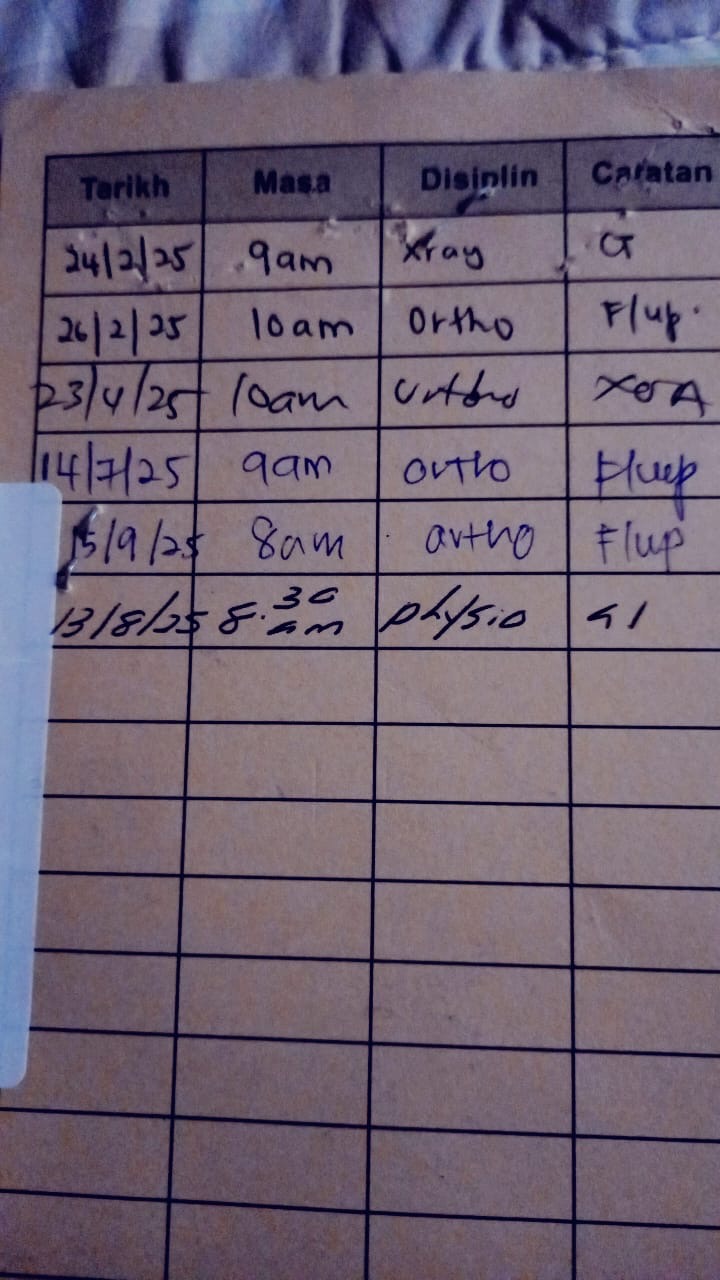 Tarikh Masa Disiplin Catatan
24/2/25 9am Xray G
26/2/25 10am Ortho F/up.
23/4/25 10am Ortho XOA
14/7/25 9am ortho F/up
15/9/25 8am ortho F/up
13/8/25 8.30 am physio